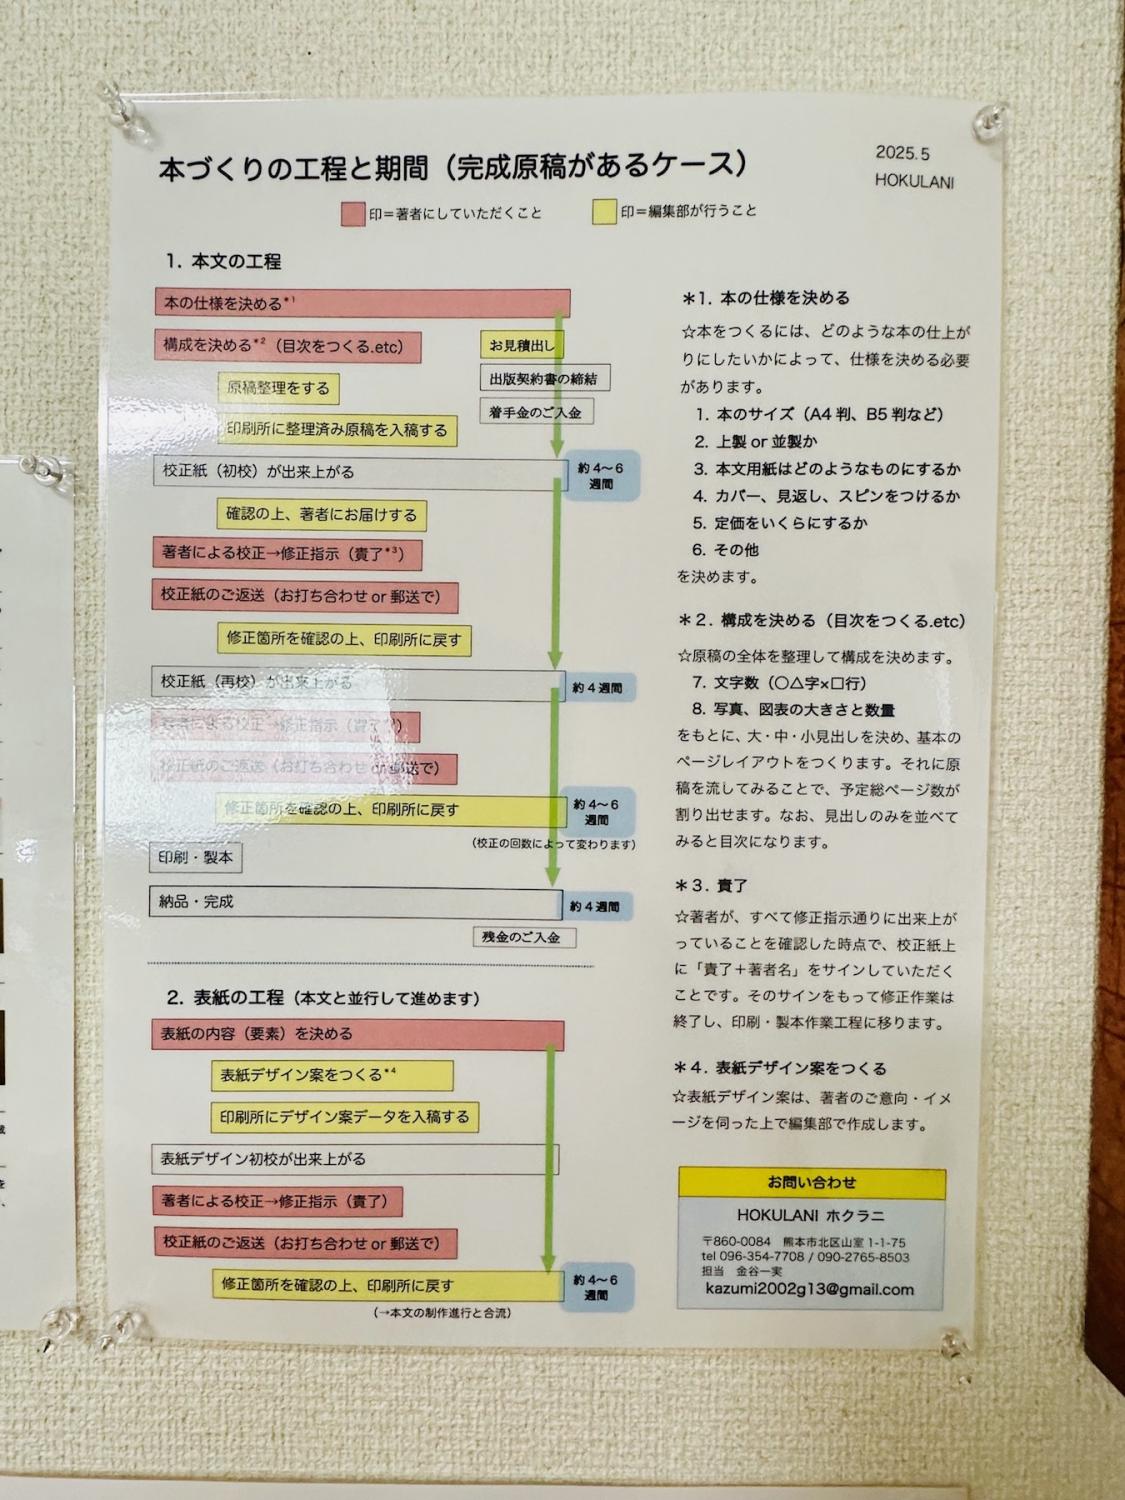 本づくりの工程と期間（完成原稿があるケース）
2025.5
HOKULANI
印＝著者にしていただくこと
印＝編集部が行うこと
1. 本文の工程
本の仕様を決める*1
構成を決める*2（目次をつくる.etc）
お見積出し
出版契約書の締結
原稿整理をする
着手金のご入金
印刷所に整理済み原稿を入稿する
校正紙（初校）が出来上がる
約4〜6
週間
確認の上、著者にお届けする
著者による校正→修正指示（責了*3）
校正紙のご返送（お打ち合わせ or 郵送で）
修正箇所を確認の上、印刷所に戻す
校正紙（再校）が出来上がる
約4週間
著者による校正→修正指示（責了
校正紙のご返送（お打ち合わせ or 郵送で）
修正箇所を確認の上、印刷所に戻す
約4〜6
週間
（校正の回数によって変わります）
印刷・製本
納品・完成
約4週間
残金のご入金
2. 表紙の工程（本文と並行して進めます）
表紙の内容（要素）を決める
表紙デザイン案をつくる*4
印刷所にデザイン案データを入稿する
表紙デザイン初校が出来上がる
著者による校正→修正指示（責了）
校正紙のご返送（お打ち合わせ or 郵送で）
修正箇所を確認の上、印刷所に戻す
約4〜6
週間
（→本文の制作進行と合流）
＊1. 本の仕様を決める
☆本をつくるには、どのような本の仕上が
りにしたいかによって、仕様を決める必要
があります。
1. 本のサイズ（A4判、B5判など）
2. 上製 or 並製か
3. 本文用紙はどのようなものにするか
4. カバー、見返し、スピンをつけるか
5. 定価をいくらにするか
6. その他
を決めます。
＊2. 構成を決める（目次をつくる.etc）
☆原稿の全体を整理して構成を決めます。
7. 文字数（〇△字×□行）
8. 写真、図表の大きさと数量
をもとに、大・中・小見出しを決め、基本の
ページレイアウトをつくります。それに原
稿を流してみることで、予定総ページ数が
割り出せます。なお、見出しのみを並べて
みると目次になります。
＊3. 責了
☆著者が、すべて修正指示通りに出来上が
っていることを確認した時点で、校正紙上
に「責了＋著者名」をサインしていただく
ことです。そのサインをもって修正作業は
終了し、印刷・製本作業工程に移ります。
＊4. 表紙デザイン案をつくる
☆表紙デザイン案は、著者のご意向・イメ
ージを伺った上で編集部で作成します。
お問い合わせ
HOKULANI ホクラニ
〒860-0084 熊本市北区山室1-1-75
tel 096-354-7708 / 090-2765-8503
担当 金谷一実
kazumi2002g13@gmail.com